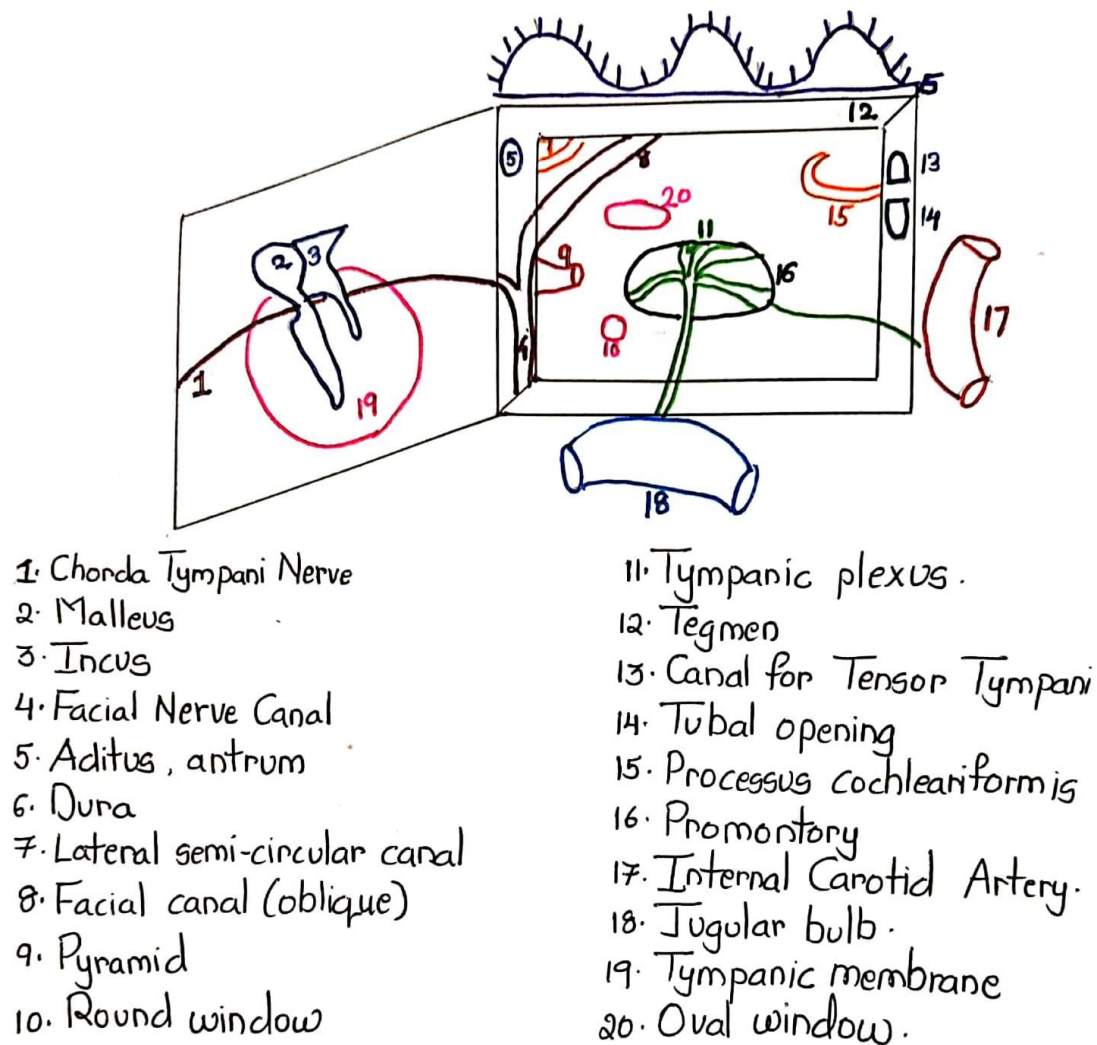 12
5
7
8
13
20
2
3
11
15
14
9
16
10
17
4
1
19
18
1. Chorda Tympani Nerve
2. Malleus
3. Incus
4. Facial Nerve Canal
5. Aditus, antrum
6. Dura
7. Lateral semi-circular canal
8. Facial canal (oblique)
9. Pyramid
10. Round window
11. Tympanic plexus.
12. Tegmen
13. Canal for Tensor Tympani
14. Tubal opening
15. Processus cochleariformis
16. Promontory
17. Internal Carotid Artery.
18. Jugular bulb.
19. Tympanic membrane
20. Oval window.